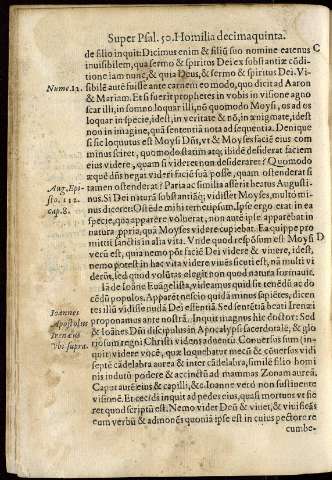 Super Psal. 50. Homilia decimaquinta.
de filio inquit: Dicimus enim & filiū suo nomine eatenus C
inuisibilem, qua sermo & spiritus Dei ex substantiæ cōdi-
tione iam nunc, & quia Deus, & sermo & spiritus Dei. Vi-
Nume. 12. sibilē autē fuisse ante carnem eo modo, quo dicit ad Aaron
& Mariam. Et si fuerit prophetes in vobis in visione agnos
scar illi, in somno loquar illi, nō quomodo Moysi, os ad os
loquar in specie, idest, in veritate & nō, in ænigmate, idest
non in imagine, quā sententiā nota ad sequentia. Denique
si sic loquutus est Moysi Dñs, vt & Moyses faciē eius com
minus sciret, quomodo statim atq; ibidē desiderat faciem
eius videre, quam si videret non desideraret? Quomodo
æquè dñs negat videri faciē suā posse, quam ostenderat si
Aug. Epi- tamen ostenderat? Paria ac similia asserit beatus Augusti-
sto. 112. nus. Si Dei naturā substantiāq; vidisset Moyses, multò mi-
cap. 8. nus diceret: Ostēde mihi temetipsum. Ipse ergo erat in ea
specie, qua apparere voluerat, non autē ipse apparebat in
natura ppria, quā Moyses videre cupiebat. Ea quippe pro
mittit sanctis in alia vita. Vnde quod respōsum est Moysi D
verū est, quia nemo pōt faciē Dei videre & viuere, idest,
nemo potest in hac vita videre viuēs sicuti est, nā multi vi
derūt, sed quod volūtas elegit non quod natura formauit.
Iā de Ioāne Euāgelista, videamus quid sit tenēdū ac do
cēdū populos. Apparēt nescio quidā minus sapiētes, dicen
Ioannes tes illū vidisse nudā Dei essentiā. Sed sentētiā beati Irenæi
Apostolus proponamus ante nostrā. Inquit magnus hic doctor: Sed
Irenæus & Ioānes Dñi discipulus in Apocalypsi sacerdotalē, & glo
Vbi supra. riosum regni Christi videns aduentū. Conuersus sum (in-
quit) videre vocē, quæ loquebatur mecū & cōuersus vidi
septē cādelabra aurea & inter cādelabra, similē filio homi
nis indutū podere & accinctū ad mammas Zonam aureā,
Caput autē eius & capilli, &c. Ioanne verò non sustinente
visionē. Et cecidi inquit ad pedes eius, quasi mortuus vt fie
ret quod scriptū est. Nemo videt Deū & viuet, & viuificās
eum verbū & admonēs quoniā ipse est in cuius pectore re
cumbe-